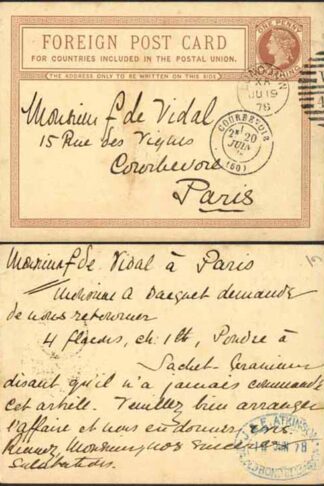 FOREIGN POST CARD
FOR COUNTRIES INCLUDED IN THE POSTAL UNION.
THE ADDRESS ONLY TO BE WRITTEN ON THIS SIDE.
ONE PENNY
LONDON
XA
JU 19
78
Monsieur f de Vidal
15 Rue des Vignes
Courbevoie
Paris
COURBEVOIE
20
JUIN
(60)
Monsieur f de Vidal à Paris
Monsieur A Dacquet demande
de nous retourner
4 flacons, ch. 1lb, Poudre à
Sachet Geranium
disant qu'il n'a jamais commandé
cet article. Veuillez bien arranger
l'affaire et nous en donner avis.
Monsieur, nos
Salutations.
E. ATKINSON
JUN 78
BOND